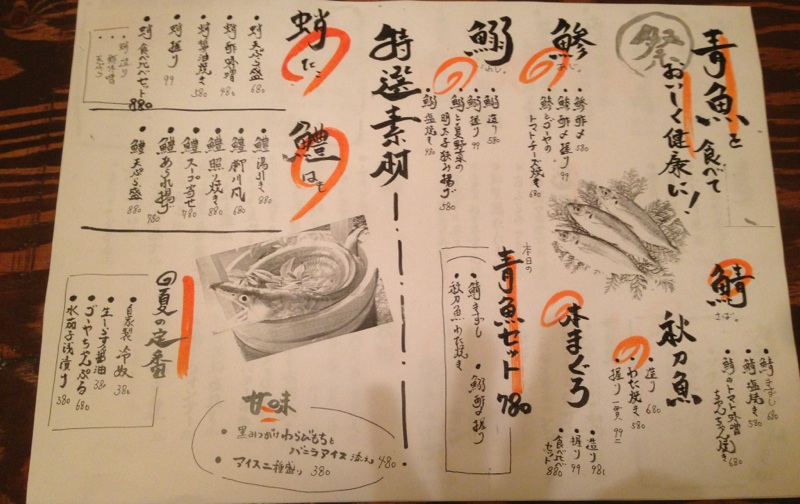 青魚を食べて
おいしく健康に!
祭
鯵
あじ。
鯵酢〆 580
鯵酢〆握り 99
鯵とゴーヤの
トマトチーズ焼き 680
鰯
鰯造り 580
鰯握り 99
鰯と夏野菜の
明太子挟み揚げ 580
鰯塩焼き 480
鯖
さば。
鯖きずし 680
鯖塩焼き 580
鯖のトマト味噌
ちゃんちゃん焼き
秋刀魚
造り 680
わた焼き 580
握り一貫 99
本まぐろ
造り 981
握り 99
食べ比べ
セット 880
本日の
青魚セット 780
鯖きずし
鰯酢〆握り
秋刀魚わた焼き
特選素材
蛸
たこ
蛸天ぷら盛 680
蛸酢味噌 480
蛸醤油焼き 580
蛸握り 99
蛸食べ比べセット 880
鱧
はも
鱧湯引き 880
鱧柳川風 680
鱧照り焼き 880
鱧スープ寄せ 780
鱧あられ揚げ 780
鱧天ぷら盛 880
夏の定番
自家製冷奴 380
生しらす醤油 380
ゴーヤちゃんぷる 680
水茄子浅漬け 580
甘味
黒みつがけわらびもちと
バニラアイス添え 480
アイス二種盛り 380